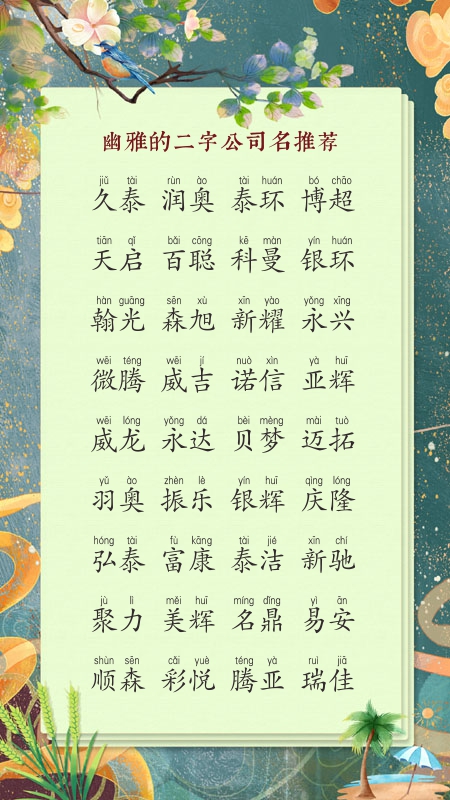 幽雅的二字公司名推荐
jiǔ tài rùn ào tài huán bó chāo
久泰 润奥 泰环 博超
tiān qǐ bǎi cōng kē màn yín huán
天启 百聪 科曼 银环
hàn guāng sēn xù xīn yào yǒng xīng
翰光 森旭 新耀 永兴
wēi téng wēi jí nuò xìn yà huī
微腾 威吉 诺信 亚辉
wēi lóng yǒng dá bèi mèng mài tuò
威龙 永达 贝梦 迈拓
yǔ ào zhèn lè yín huī qìng lóng
羽奥 振乐 银辉 庆隆
hóng tài fù kāng tài jié xīn chí
弘泰 富康 泰洁 新驰
jù lì měi huī míng dǐng yì ān
聚力 美辉 名鼎 易安
shùn sēn cǎi yuè téng yà ruì jiā
顺森 彩悦 腾亚 瑞佳